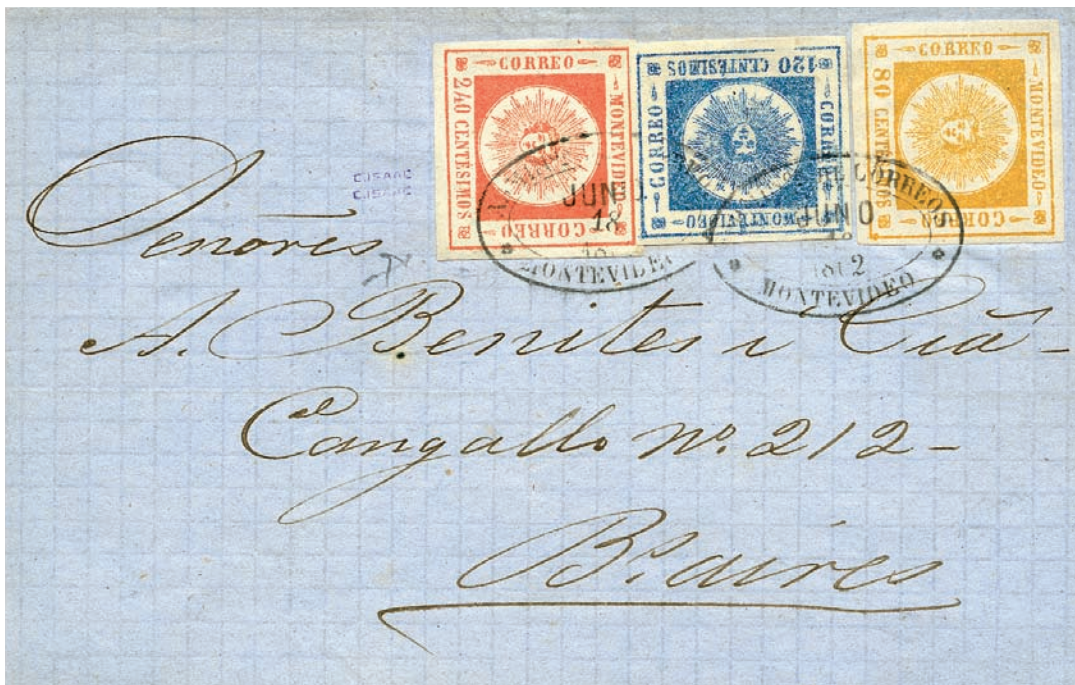 CORREO
240 CENTÉSIMOS
MONTEVIDEO
CORREO
120 CENTÉSIMOS
CORREO
CORREO
MONTEVIDEO
CORREO
80 CENTÉSIMOS
MONTEVIDEO
CORREO
JUNI
18
MONTEVIDEO
CORREOS
MONTEVIDEO
C.ISAAC
C.ISAAC
Señores
A. Benites i Ciã-
Cangallo Nº. 212-
Bs. aires